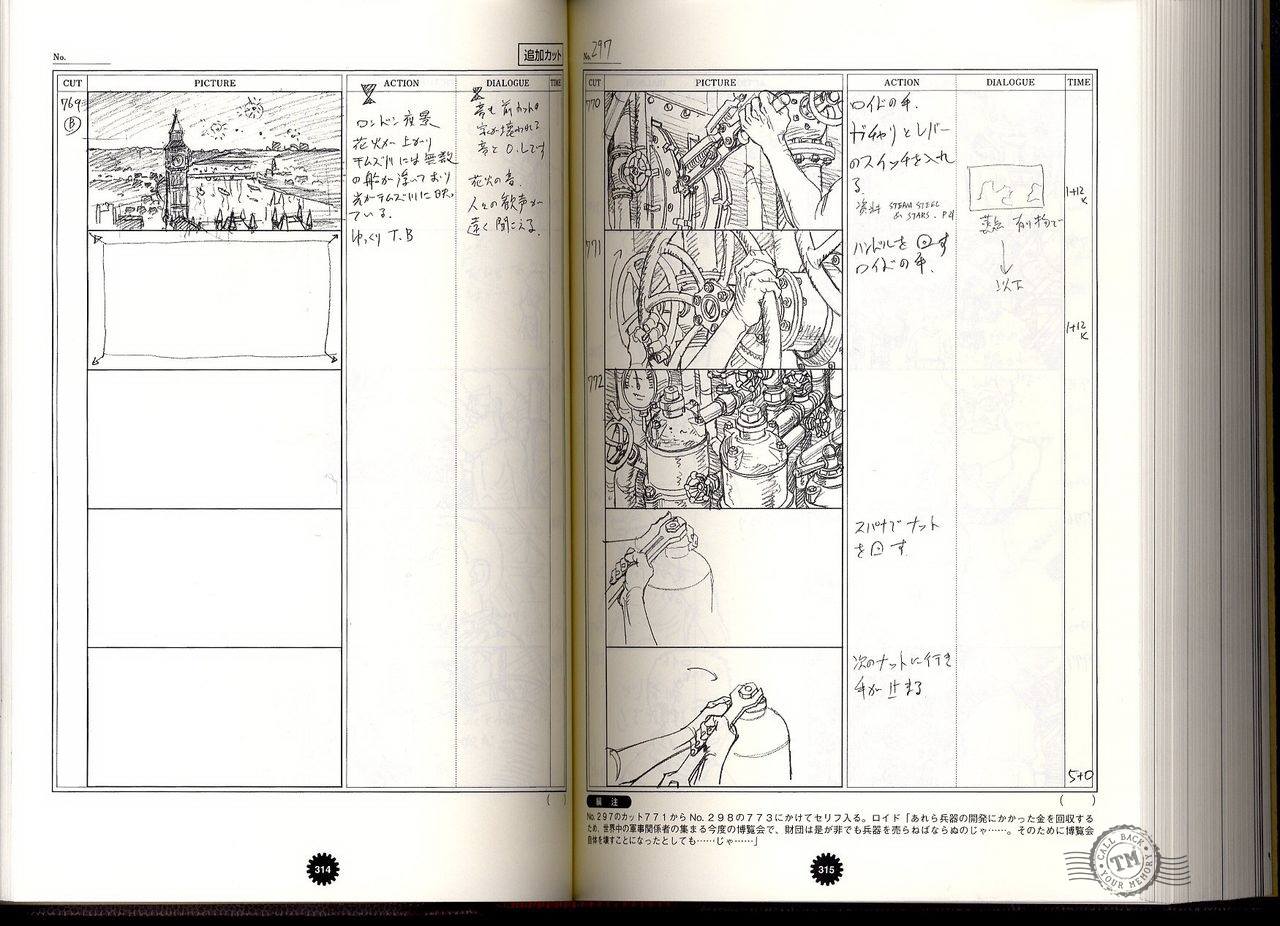 No.
追加カット
CUT PICTURE ACTION DIALOGUE TIME
769
B
ロンドン夜景
花火が上がり
テムズ川には無数
の船が浮いており
ている。
ゆっくり T.B
音も前カットの
音と O.Lです
花火の音.
人々の歓声が
遠く聞こえる.
314
No. 297
CUT PICTURE ACTION DIALOGUE TIME
770
ロイドの手.
ガチャリとレバー
のスイッチを入れ
る.
資料 STEAM STEEL
& STARS. P4
1+12
K
771
ハンドルを回す
ロイドの手.
以下
1+12
K
772
スパナでナット
を回す
次のナットに行き
手が止まる
5+0
( )
( )
備 注
No.297のカット771からNo.298の773にかけてセリフ入る。ロイド「あれら兵器の開発にかかった金を回収する
ため、世界中の軍事関係者の集まる今度の博覧会で、財団は是が非でも兵器を売らねばならぬのじゃ……。そのために博覧会
自体を壊すことになったとしても……じゃ……」
315
CALL BACK
TM
YOUR MEMORY